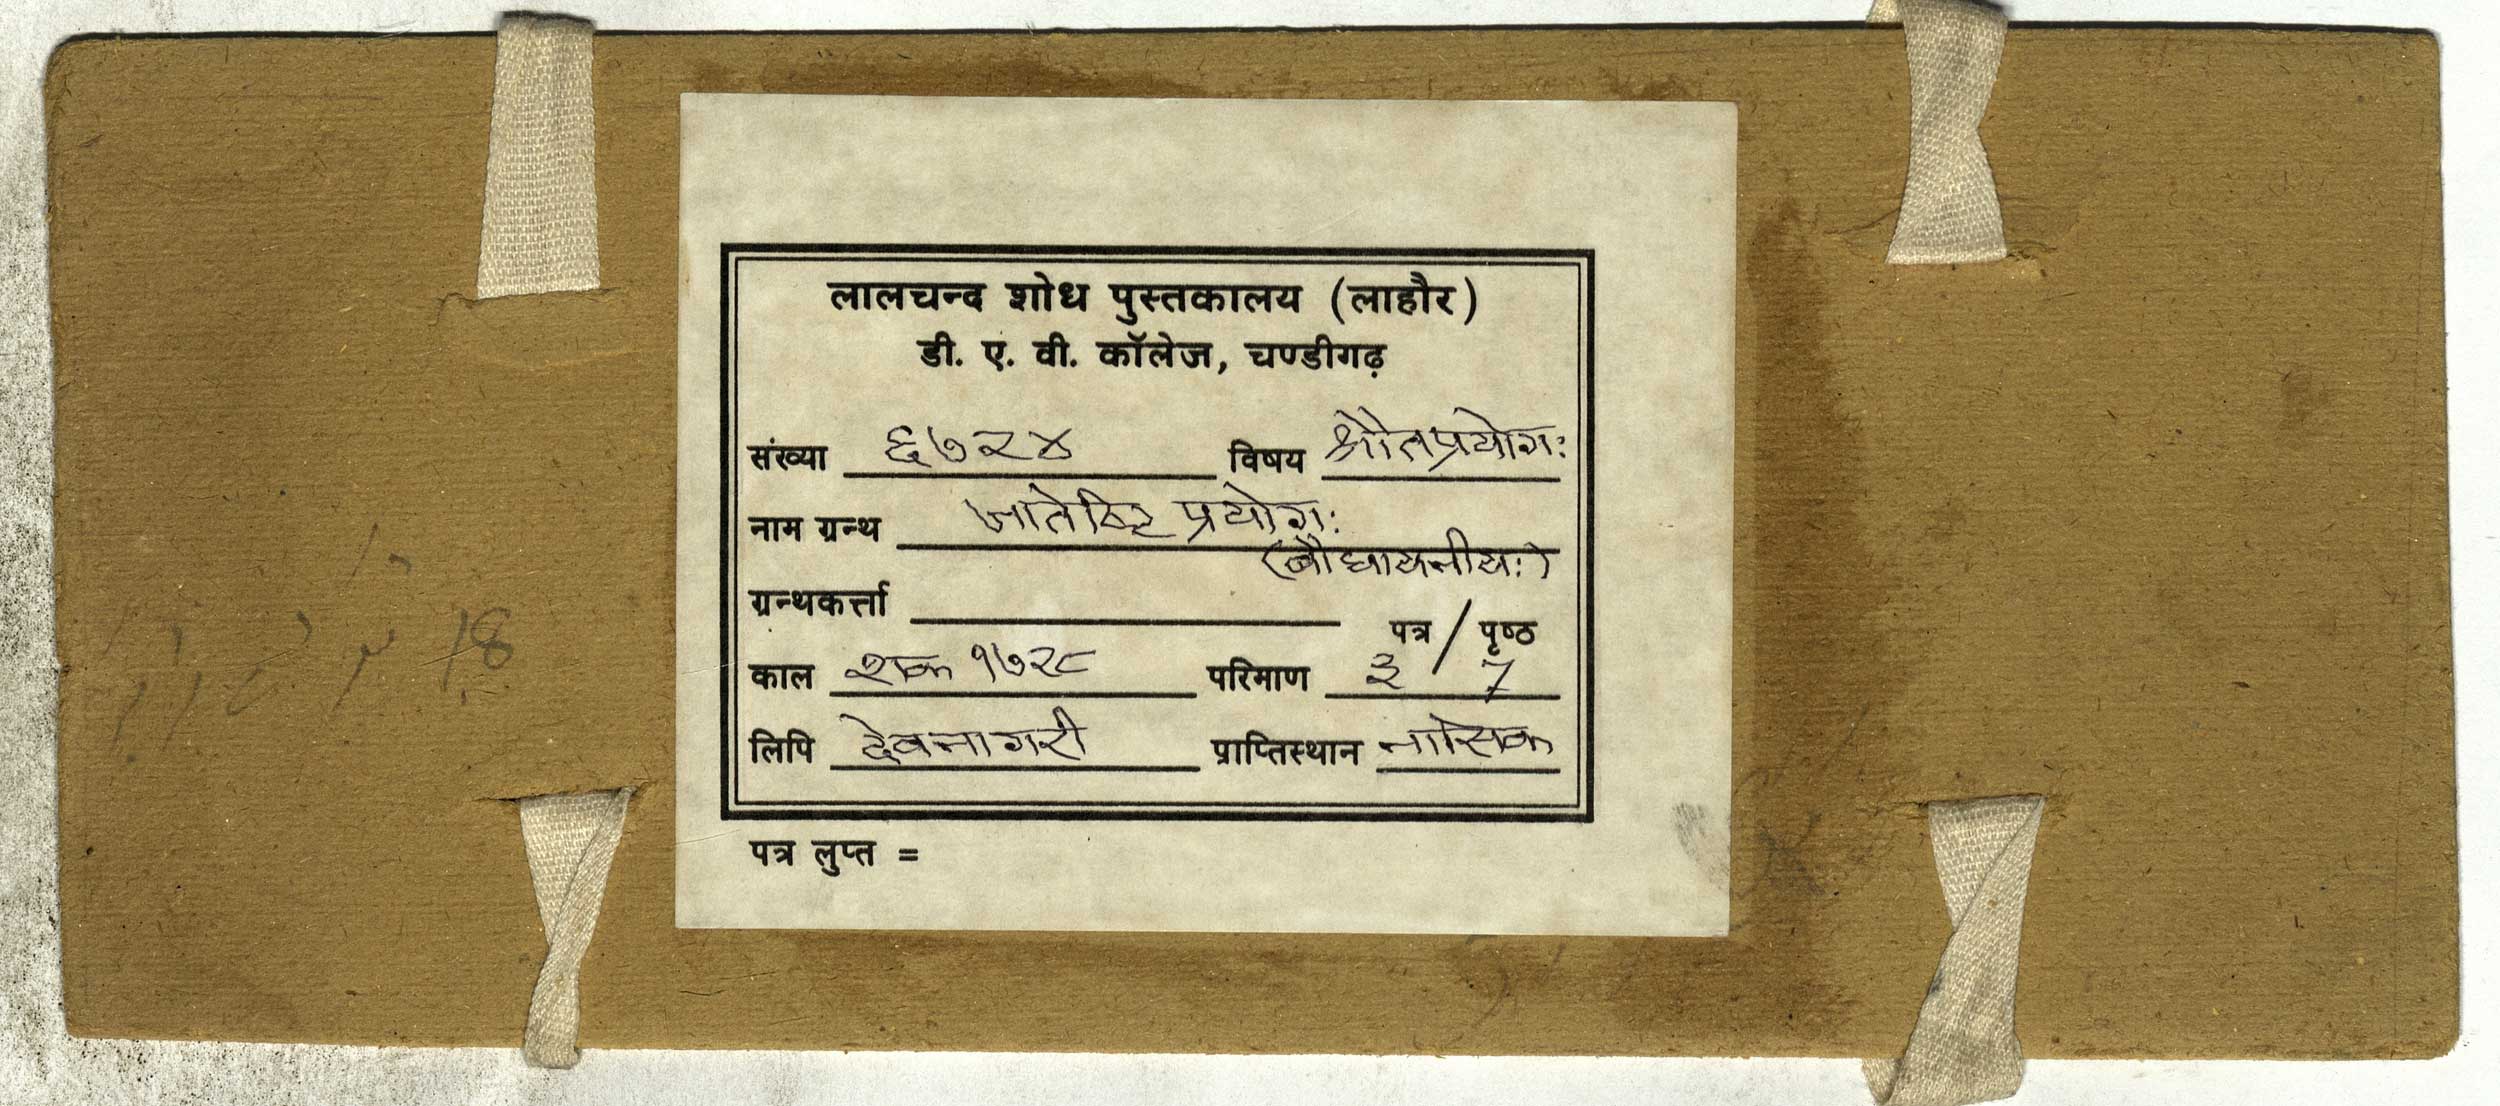 लालचन्द शोध पुस्तकालय (लाहौर)
डी. ए. वी. कॉलेज, चण्डीगढ़
संख्या ६७२४ विषय श्रौतप्रयोगः
नाम ग्रन्थ जातेष्टि प्रयोगः
(बौधायनीयः)
ग्रन्थकर्त्ता
पत्र / पृष्ठ
काल शक १७२८ परिमाण ३ / 7
लिपि देवनागरी प्राप्तिस्थान नासिक
पत्र लुप्त =